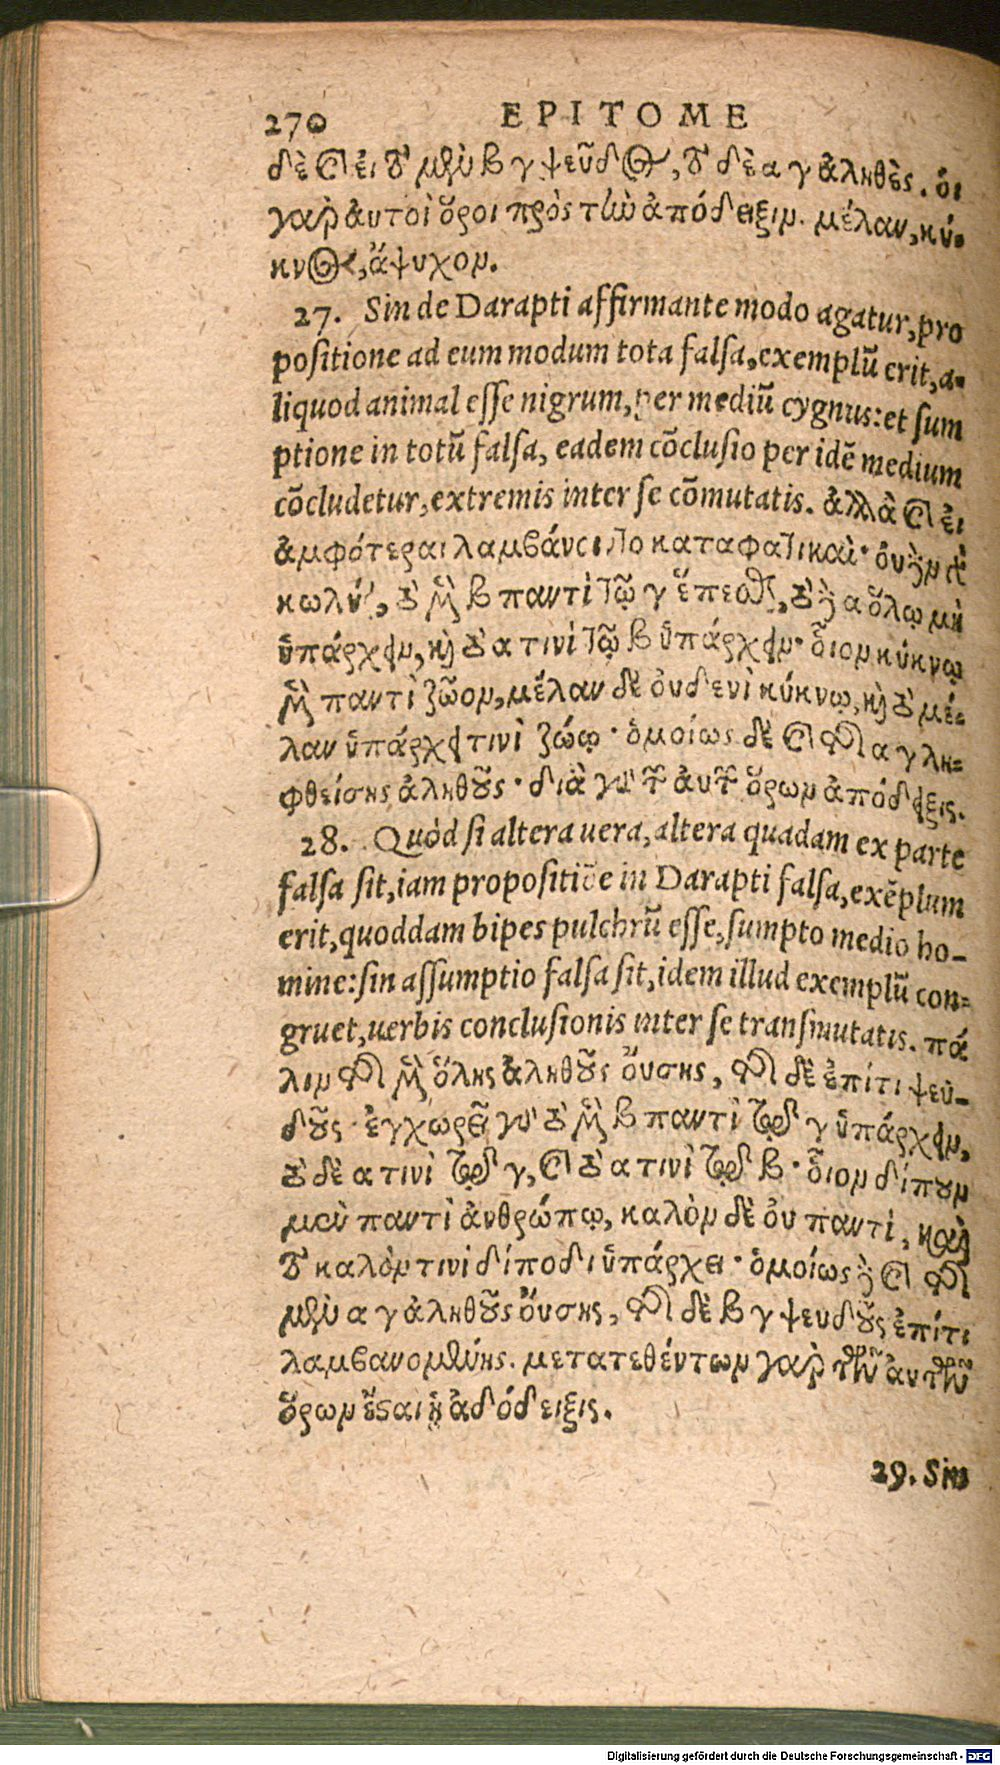 270 EPITOME
δὲ καὶ εἰ τὸ μὲν β γ ψεῦδος, τὸ δὲ α γ ἀληθὲς. οἱ
γὰρ ἀυτοὶ ὅροι πρὸς τὴν ἀπόδειξιν. μέλαν, κύ-
κνος, ἄψυχον.
27. Sin de Darapti affirmante modo agatur, pro
positione ad eum modum tota falsa, exemplũ erit, a-
liquod animal esse nigrum, per mediũ cygnus: et sum
ptione in totũ falsa, eadem cõclusio per idẽ medium
cõcludetur, extremis inter se cõmutatis. ἀλλὰ καὶ εἰ
ἀμφότεραι λαμβάνοιντο καταφατικαὶ· οὐδὲν γὰρ
κωλύει, τὸ μὲν β παντὶ τῷ γ ἕπεσθαι, τὸ δὲ α ὅλῳ μὴ
ὑπάρχειν, καὶ τὸ α τινὶ τῷ β ὑπάρχειν· οἷον κύκνῳ
μὲν παντὶ ζῶον, μέλαν δὲ οὐδενὶ κύκνῳ, καὶ τὸ μέ-
λαν ὑπάρχει τινὶ ζώῳ· ὁμοίως δὲ καὶ τῆς α γ λη-
φθείσης ἀληθοῦς· διὰ γὰρ τῶν αὐτῶν ὅρων ἀπόδειξις.
28. Quòd si altera uera, altera quadam ex parte
falsa sit, iam propositiõe in Darapti falsa, exẽplum
erit, quoddam bipes pulchrũ esse, sumpto medio ho-
mine: sin assumptio falsa sit, idem illud exemplũ con-
gruet, uerbis conclusionis inter se transmutatis. πά
λιν τῆς μὲν ὅλης ἀληθοῦς οὔσης, τῆς δὲ ἐπίτι ψευ-
δοῦς· ἐγχωρεῖ γὰρ τὸ μὲν β παντὶ τῷ γ ὑπάρχειν,
τὸ δὲ α τινὶ τῷ γ, καὶ τὸ α τινὶ τῷ β· οἷον δίπουν
μὲν παντὶ ἀνθρώπῳ, καλὸν δὲ οὐ παντὶ, καὶ
τὸ καλὸν τινὶ δίποδι ὑπάρχει· ὁμοίως δὲ καὶ τῆς
μὲν α γ ἀληθοῦς οὔσης, τῆς δὲ β γ ψευδοῦς ἐπίτι
λαμβανομένης. μετατεθέντων γὰρ τῶν ἀυτῶν
ὅρων ἔσαι ἡ ἀδόδειξις.
29. Sin